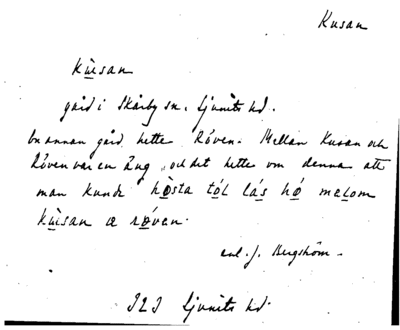 Kusan
kùsan
gård i Skårby sn. Ljunits hd.
En annan gård hette Röven. Mellan Kusan och
Röven var en äng, och det hette om denna att
man kunde hòsta tól lás hö melom
kùsan æ røven.
enl. J. Bergström.
Ljunits hd.